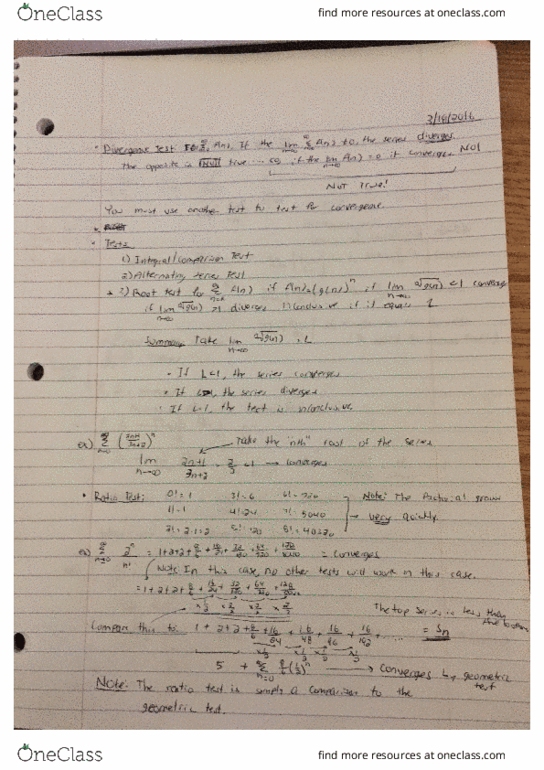 OneClass
find more resources at oneclass.com
3/18/2016
• Divergence Test for Σ A(n), If the lim ≠ 0, the series diverges
The opposite is NOT true if the lim A(n) = 0 it converges NO!
NOT True!
You must use another test to test for convergence.
• Tests
1) Integral/comparison Test
2) Alternating series Test
3) Root test for Σ A(n) if A(n) = (g(n))^n if lim n→∞ <1 converges
if lim n→∞ >1 diverges inconclusive if it equals 1
Summary Take lim n→∞ = L
• If L<1, the series converges
• If L>1, the series diverges
• If L=1, the test is inconclusive.
ex) Σ n=0 (2n+1/3n+2)^n take the "nth" root of the series
lim n→∞ 2n+1/3n+2 = 2/3 <1 → converges
• Ratio Test: 0! = 1 3! = 6 6! = 720 Note: The factorial grows
1! = 1 4! = 24 7! = 5040 → very quickly.
2! = 2·1=2 5! = 120 8! = 40320
ex) Σ n=0 2^n/n! = 1+2+2+8/6+16/24+32/120+64/720+128/5040 = converges
Note: In this case, no other tests will work in this case.
= 1+2+2+8/6+16/24+32/120+64/720+128/5040
The top series is less than the bottom
Compare this to 1+2+2+8/6+ 16/48+16/96+16/192+... = Sn
5 + Σ n=0 (1/2)^n → converges by geometric test
Note: The ratio test is simply a comparison to the
geometric test.
OneClass
find more resources at oneclass.com